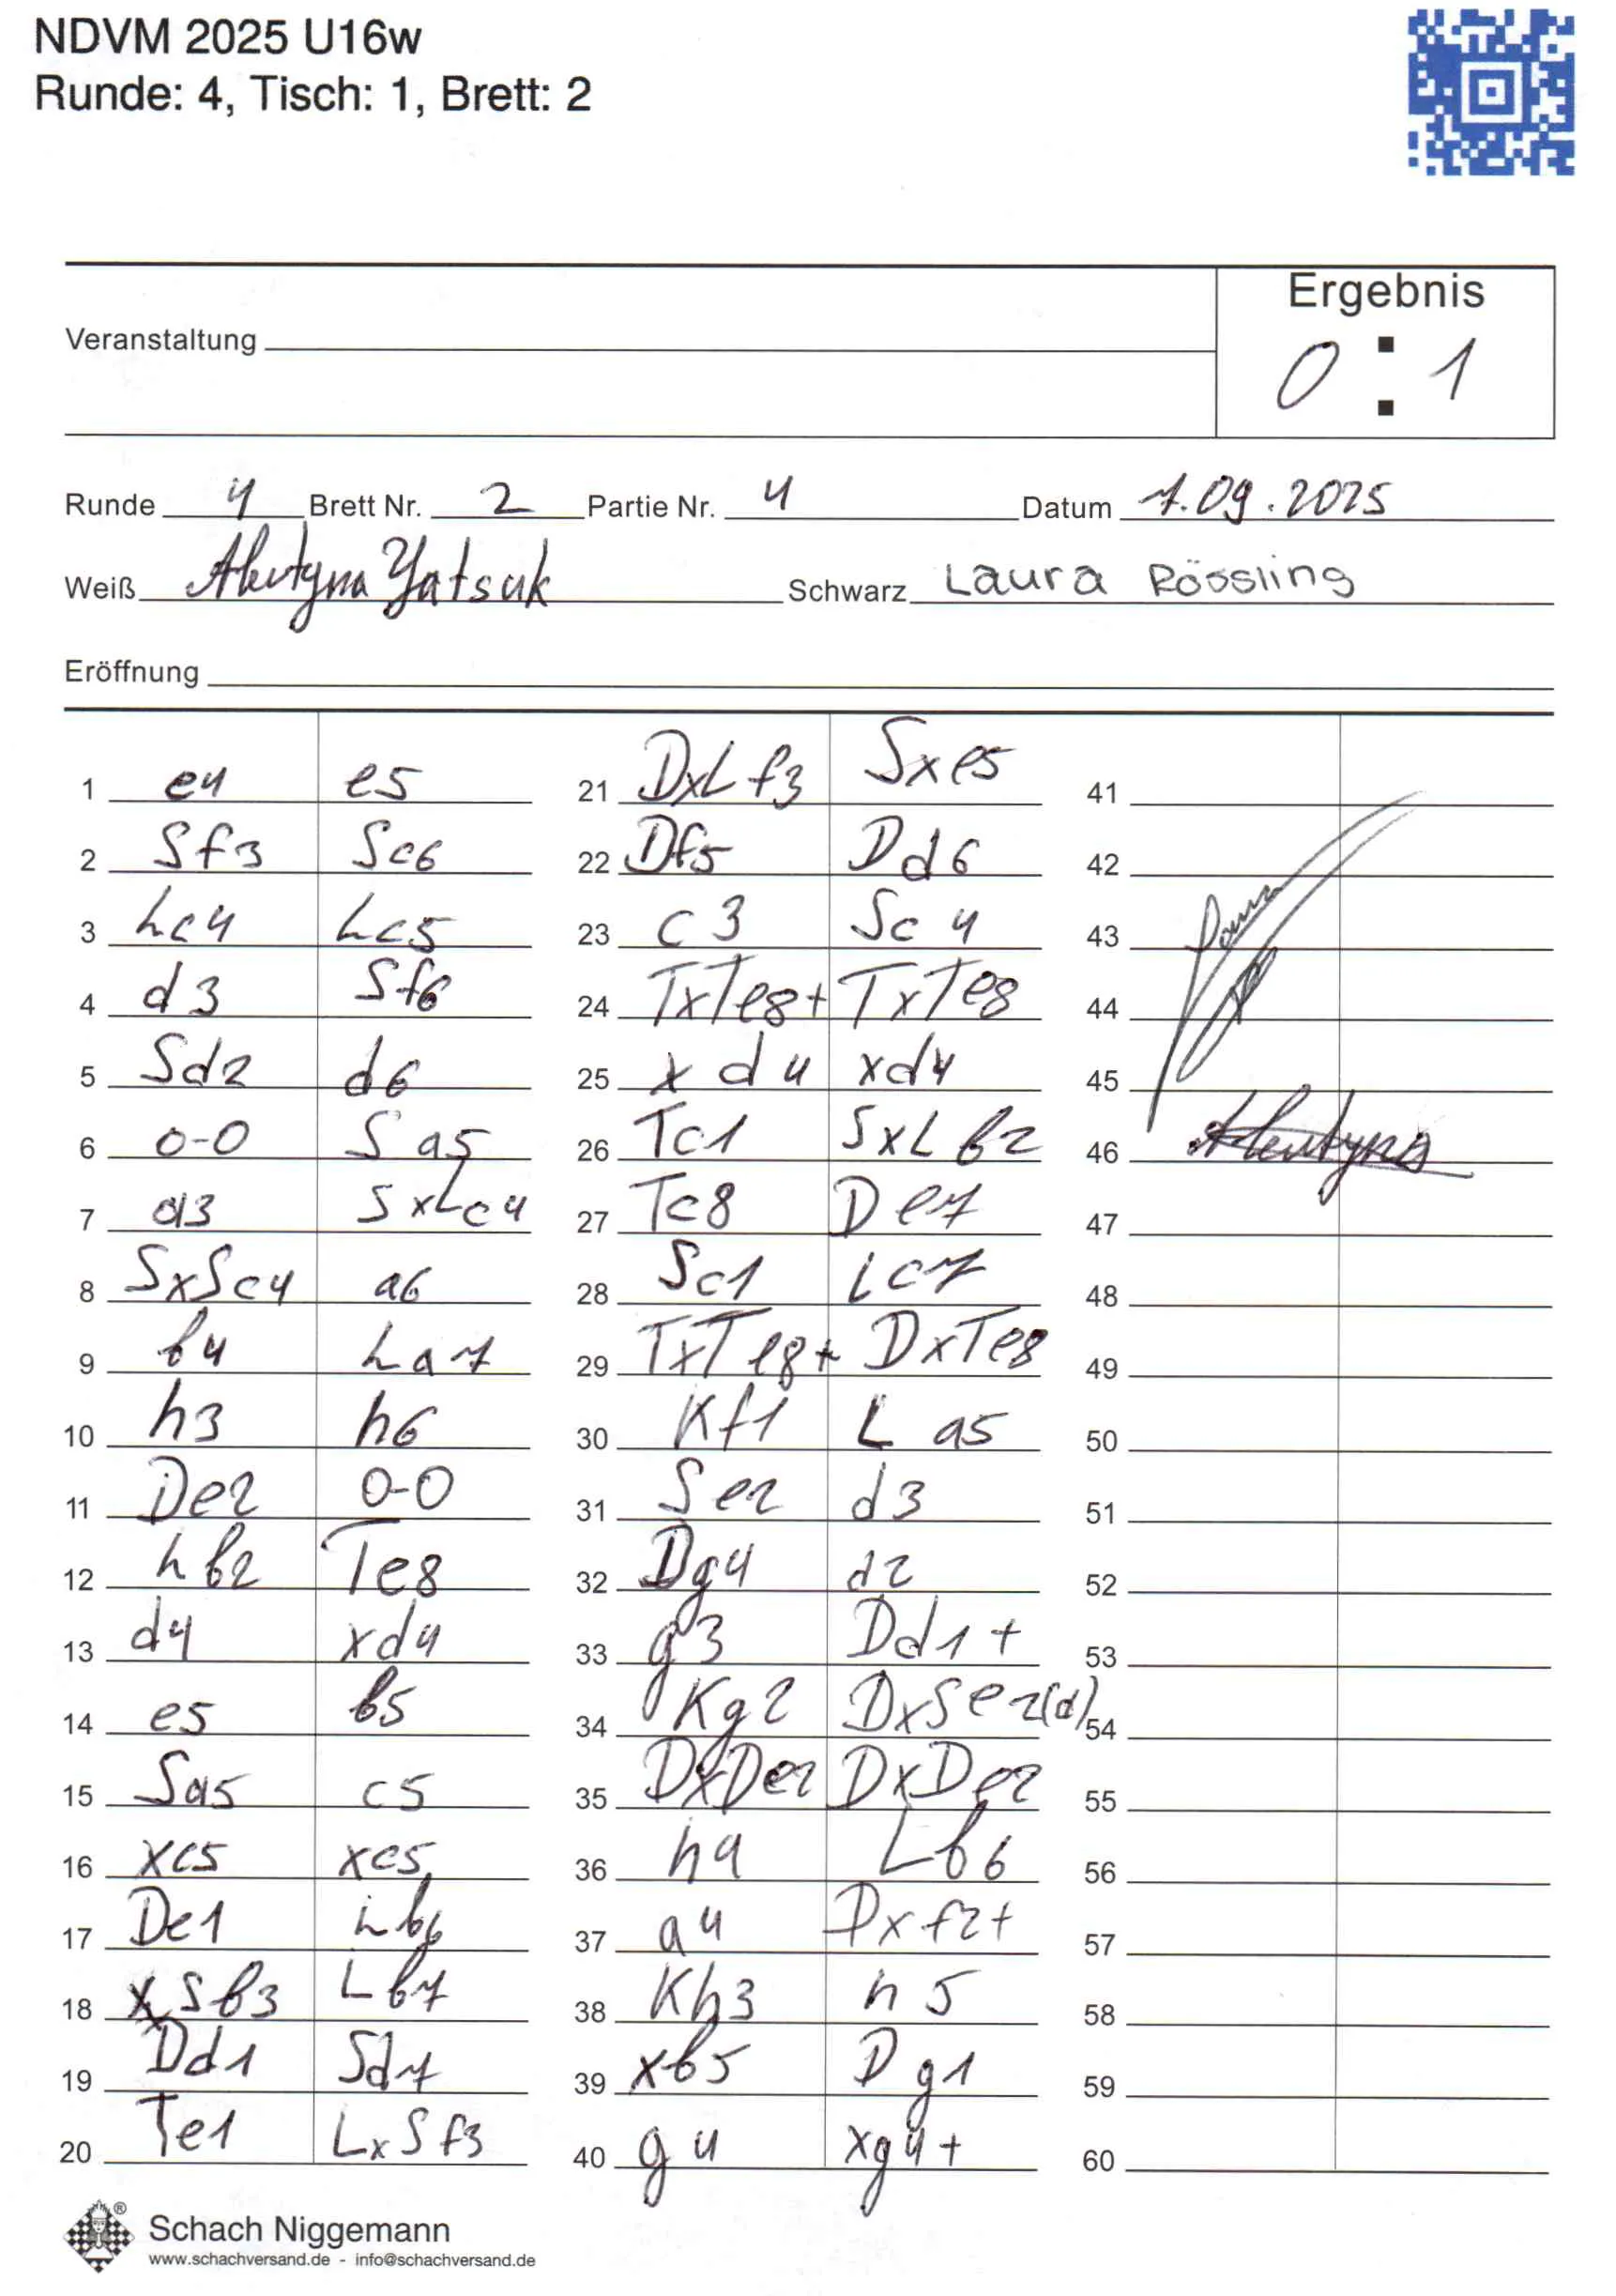 NDVM 2025 U16w
Runde: 4, Tisch: 1, Brett: 2
Ergebnis
0 : 1
Veranstaltung
Runde 4 Brett Nr. 2 Partie Nr. 4 Datum 1.09.2025
Weiß Alevtyna Yatsuk Schwarz Laura Rössling
Eröffnung
1 e4 e5 21 DxLf3 Sxe5 41
2 Sf3 Sc6 22 Df5 Dd6 42
3 Lc4 Lc5 23 c3 Sc4 43
4 d3 Sf6 24 TxTe8+ TxTe8 44
5 Sd2 d6 25 xd4 xd4 45
6 0-0 Sa5 26 Tc1 SxLb2 46
7 a3 SxLc4 27 Tc8 De7 47
8 SxSc4 a6 28 Sc1 Lc7 48
9 b4 La7 29 TxTe8+ DxTe8 49
10 h3 h6 30 Kf1 La5 50
11 De2 0-0 31 Se2 d3 51
12 Lb2 Te8 32 Dg4 d2 52
13 d4 xd4 33 g3 Dd1+ 53
14 e5 b5 34 Kg2 DxSe2(d) 54
15 Sa5 c5 35 DxDe2 DxDe2 55
16 xc5 xc5 36 h4 Lb6 56
17 De1 Lb6 37 a4 Dxf2+ 57
18 Sb3 Lb7 38 Kh3 h5 58
19 Dd1 Sd7 39 xb5 Dg1 59
20 Te1 LxSf3 40 g4 xg4+ 60
Schach Niggemann
www.schachversand.de - info@schachversand.de